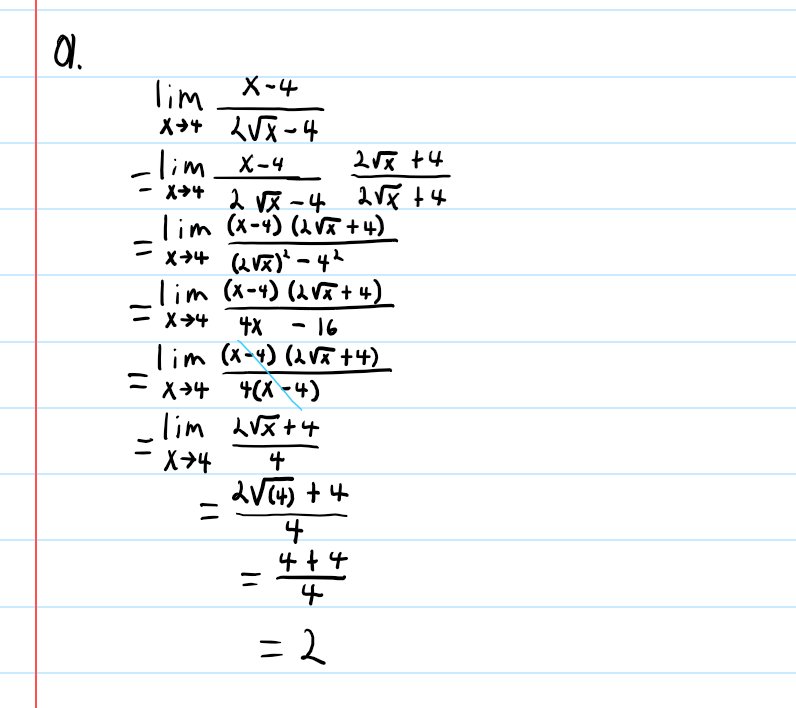 a.
lim x→4 (x-4)/(2√x-4)
= lim x→4 (x-4)/(2√x-4) (2√x+4)/(2√x+4)
= lim x→4 (x-4)(2√x+4)/((2√x)²-4²)
= lim x→4 (x-4)(2√x+4)/(4x-16)
= lim x→4 (x-4)(2√x+4)/(4(x-4))
= lim x→4 (2√x+4)/4
= (2√(4)+4)/4
= (4+4)/4
= 2